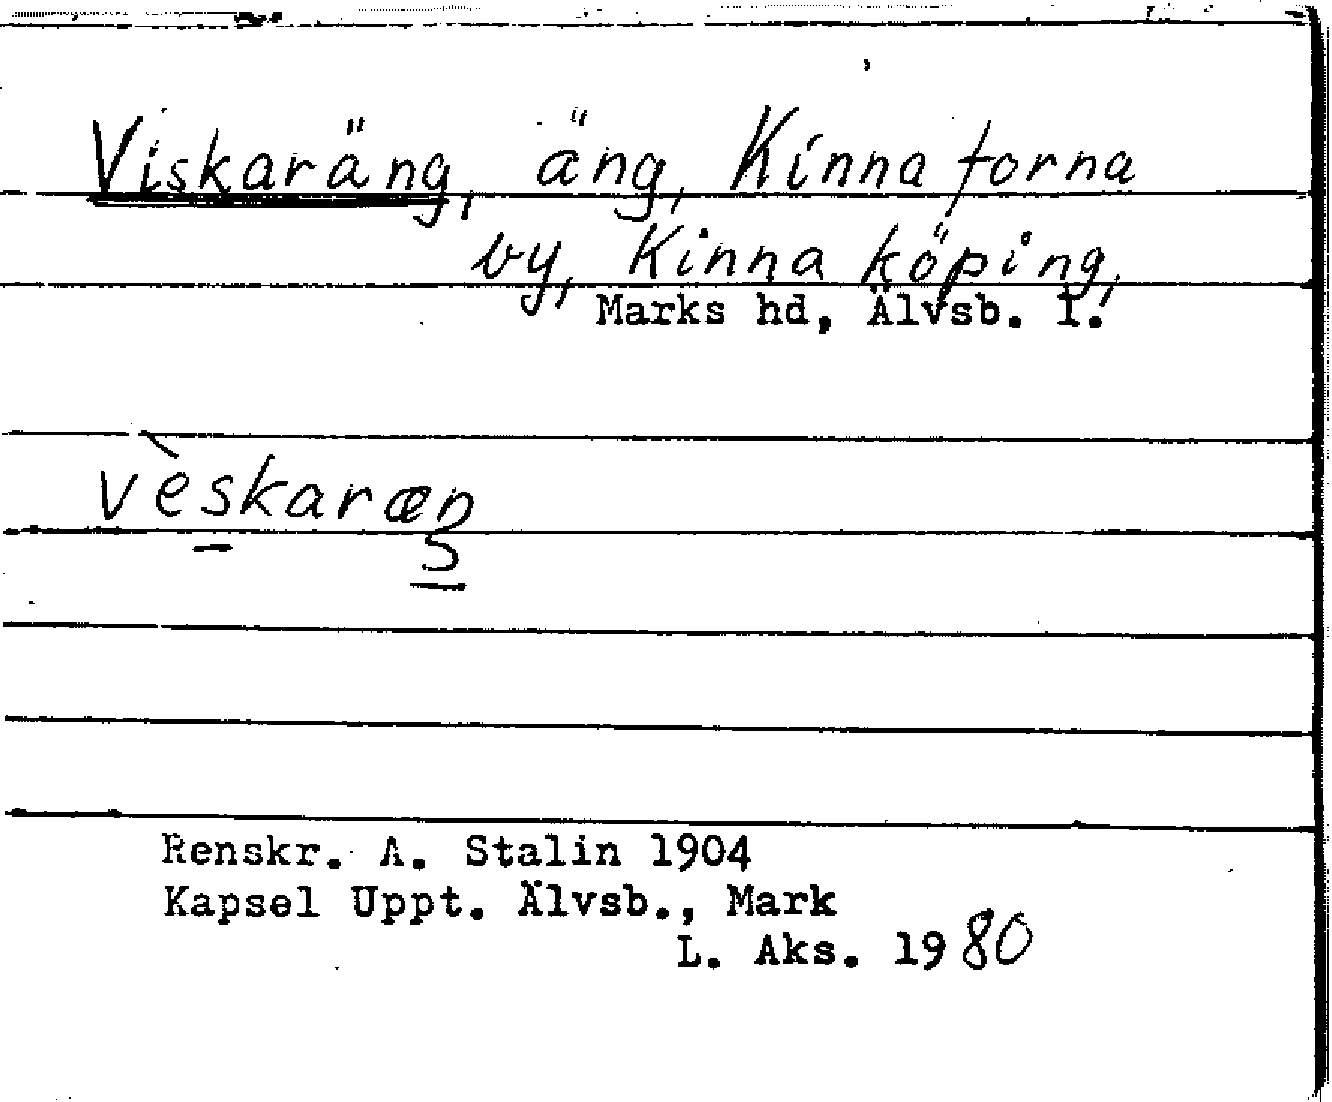 Viskaräng, äng, Kinna torna
by, Kinna köping,
Marks hd, Älvsb. l.
vèskaræŋ
Renskr. A. Stalin 1904
Kapsel Uppt. Älvsb., Mark
L. Aks. 1980